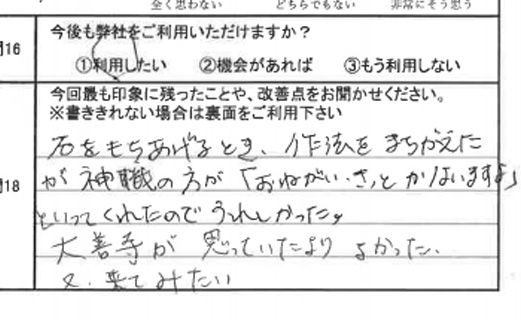 全く思わない どちらでもない 非常にそう思う
16 今後も弊社をご利用いただけますか？
①利用したい ②機会があれば ③もう利用しない
今回最も印象に残ったことや、改善点をお聞かせください。
※書ききれない場合は裏面をご利用下さい
18 石をもちあげるとき、作法をまちがえた
が神職の方が「おねがい、きっとかないますよ」
といってくれたのでうれしかった。
大善寺が思っていたよりよかった。
又、来てみたい